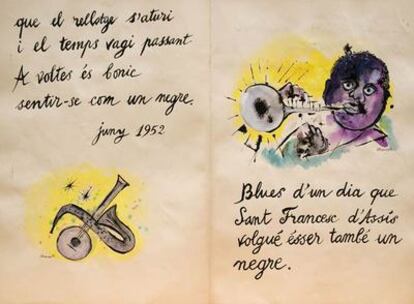 que el rellotge s'aturi
i el temps vagi passant
A voltes és bonic
sentir-se com un negre.
juny 1952
Blues d'un dia que
Sant Francesc d'Assís
volgué ésser també un
negre.